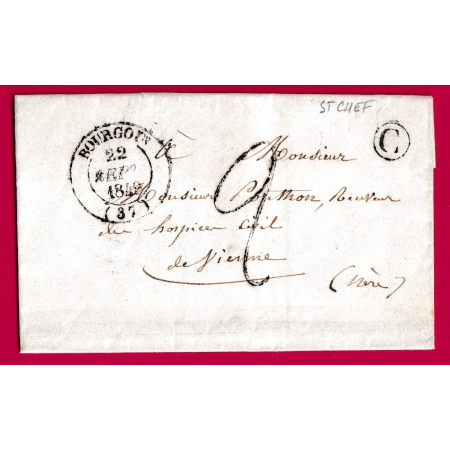 ST CHEF
BOURGOIN
22
SEPT
1849
(37)
C
2
à Monsieur
Monsieur Receveur
des hospices Civil
de Vienne
(Isère)